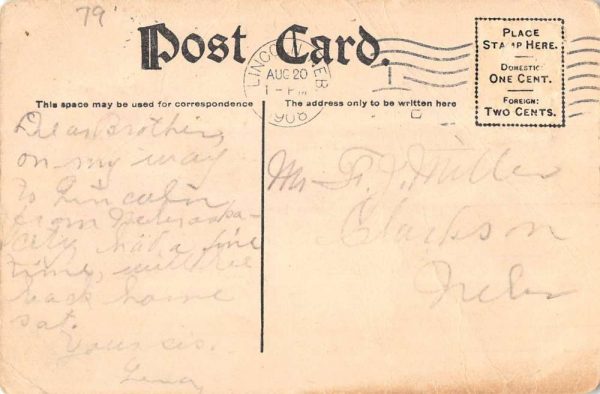 79
Post Card.
LINCOLN, NEB.
AUG 20
1 - PM
1908
PLACE
STAMP HERE.
DOMESTIC:
ONE CENT.
FOREIGN:
TWO CENTS.
This space may be used for correspondence
The address only to be written here
Dear Brother,
on my way
to Lincoln
from Nebraska
City, had a fine
time, will be
back home
sat.
Yours sis.
Mr. F. J. Miller
Clarkson
Nebr